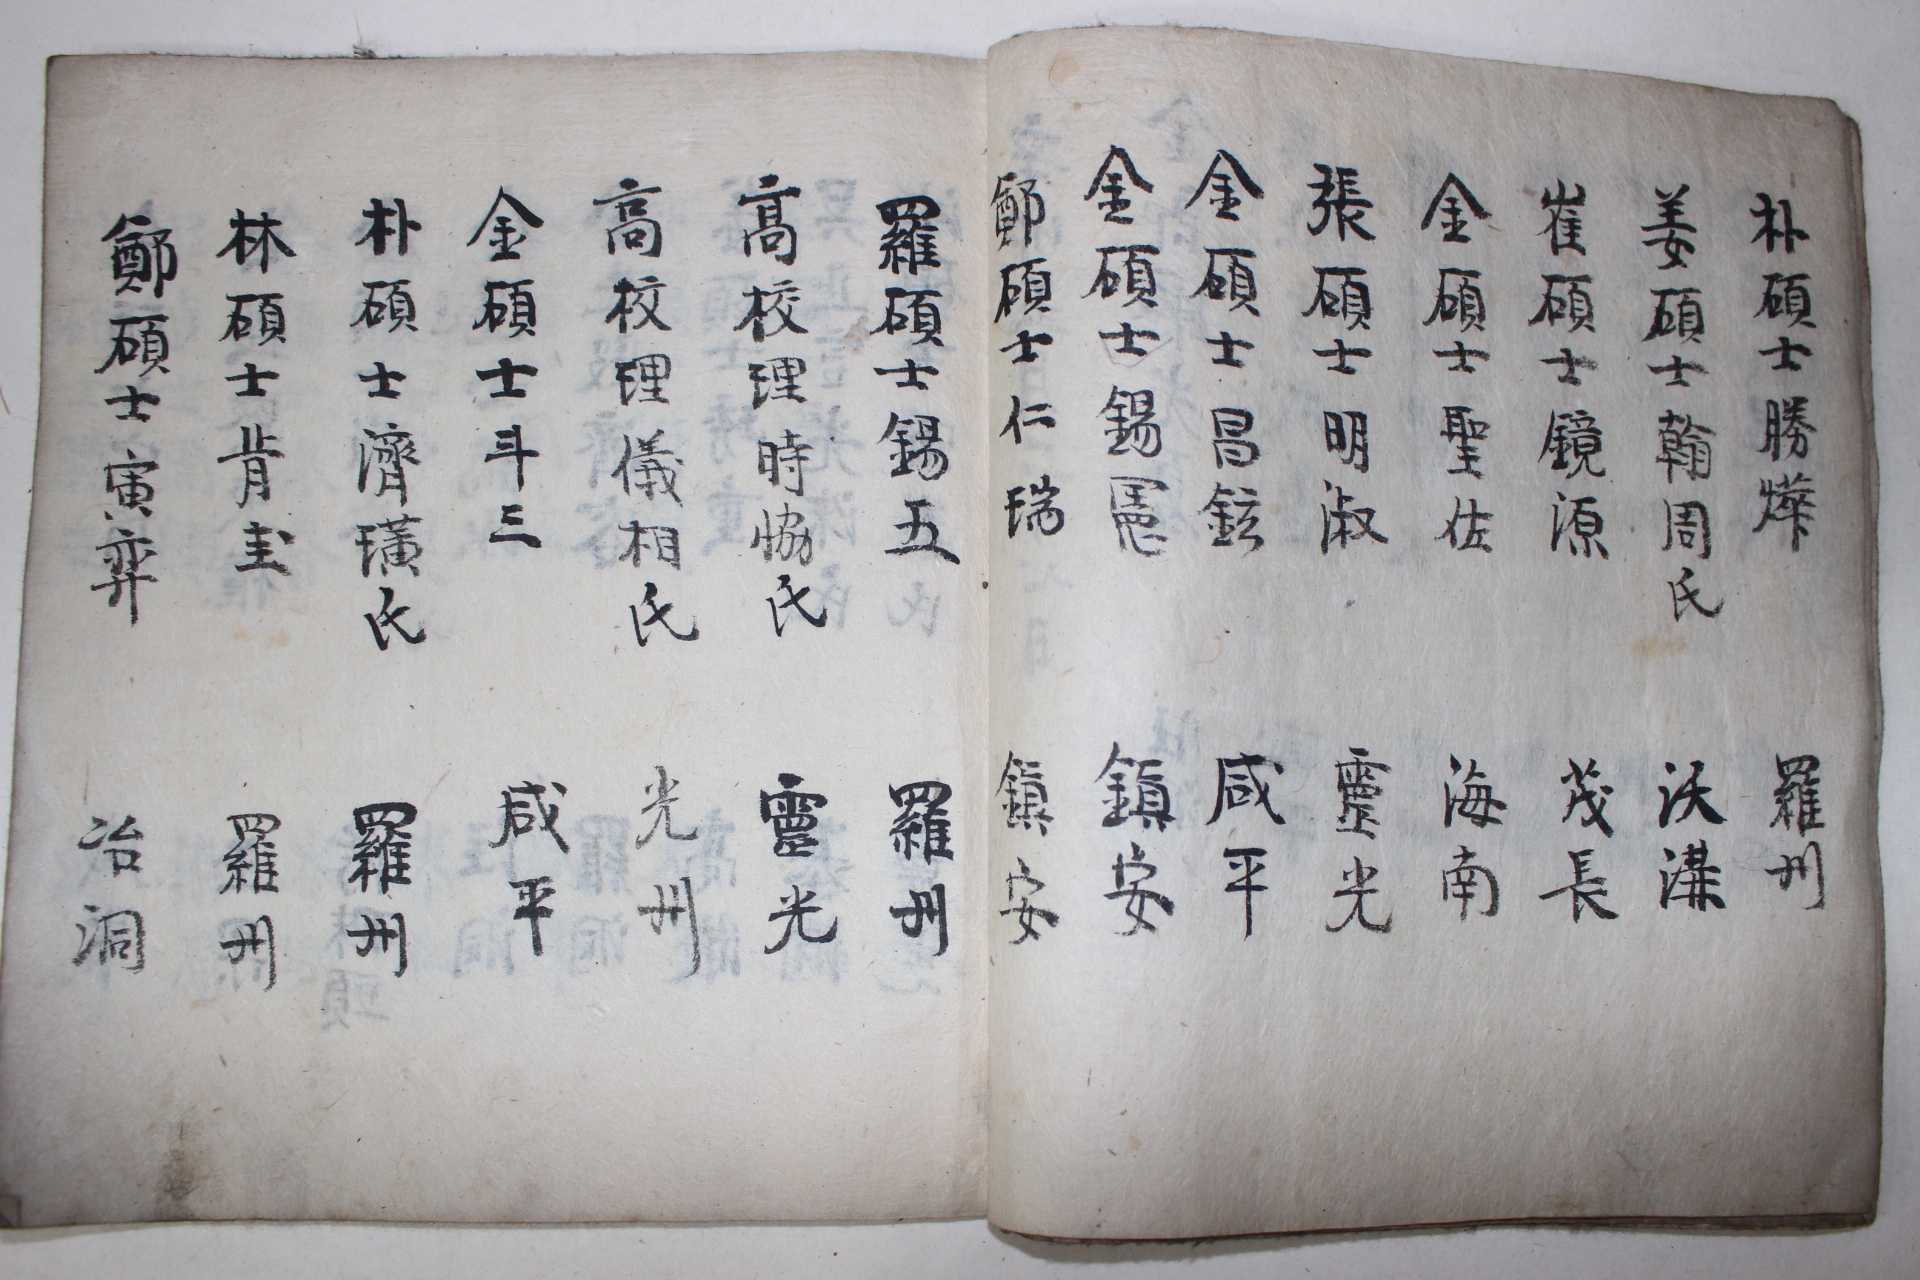 朴碩士勝燁 羅州
姜碩士翰周氏 沃溝
崔碩士鏡源 茂長
金碩士聖佐 海南
張碩士明淑 靈光
金碩士昌鉉 咸平
金碩士錫憲 鎭安
鄭碩士仁瑞 鎭安
羅碩士錫五 羅州
高校理時協氏 靈光
高校理儀相氏 光州
金碩士斗三 咸平
朴碩士濟璜氏 羅州
林碩士肯圭 羅州
鄭碩士寅弈 冶洞